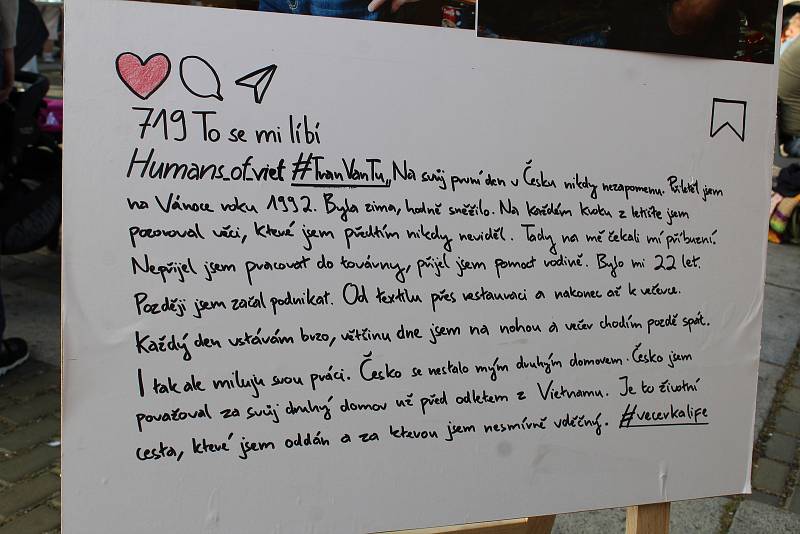 719 To se mi líbí
Humans_of_viet #TranVanTu,, Na svůj první den v Česku nikdy nezapomenu. Přiletěl jsem
na Vánoce roku 1992. Byla zima, hodně sněžilo. Na každém kroku z letiště jsem
pozoroval věci, které jsem předtím nikdy neviděl. Tady na mě čekali mí příbuzní.
Nepřijel jsem pracovat do továrny, přijel jsem pomoct rodině. Bylo mi 22 let.
Později jsem začal podnikat. Od textilu přes restauraci a nakonec až k večerce.
Každý den vstávám brzo, většinu dne jsem na nohou a večer chodím pozdě spát.
I tak ale miluju svou práci. Česko se nestalo mým druhým domovem. Česko jsem
považoval za svůj druhý domov už před odletem z Vietnamu. Je to životní
cesta, které jsem oddán a za kterou jsem nesmírně vděčný. #vecerkalife